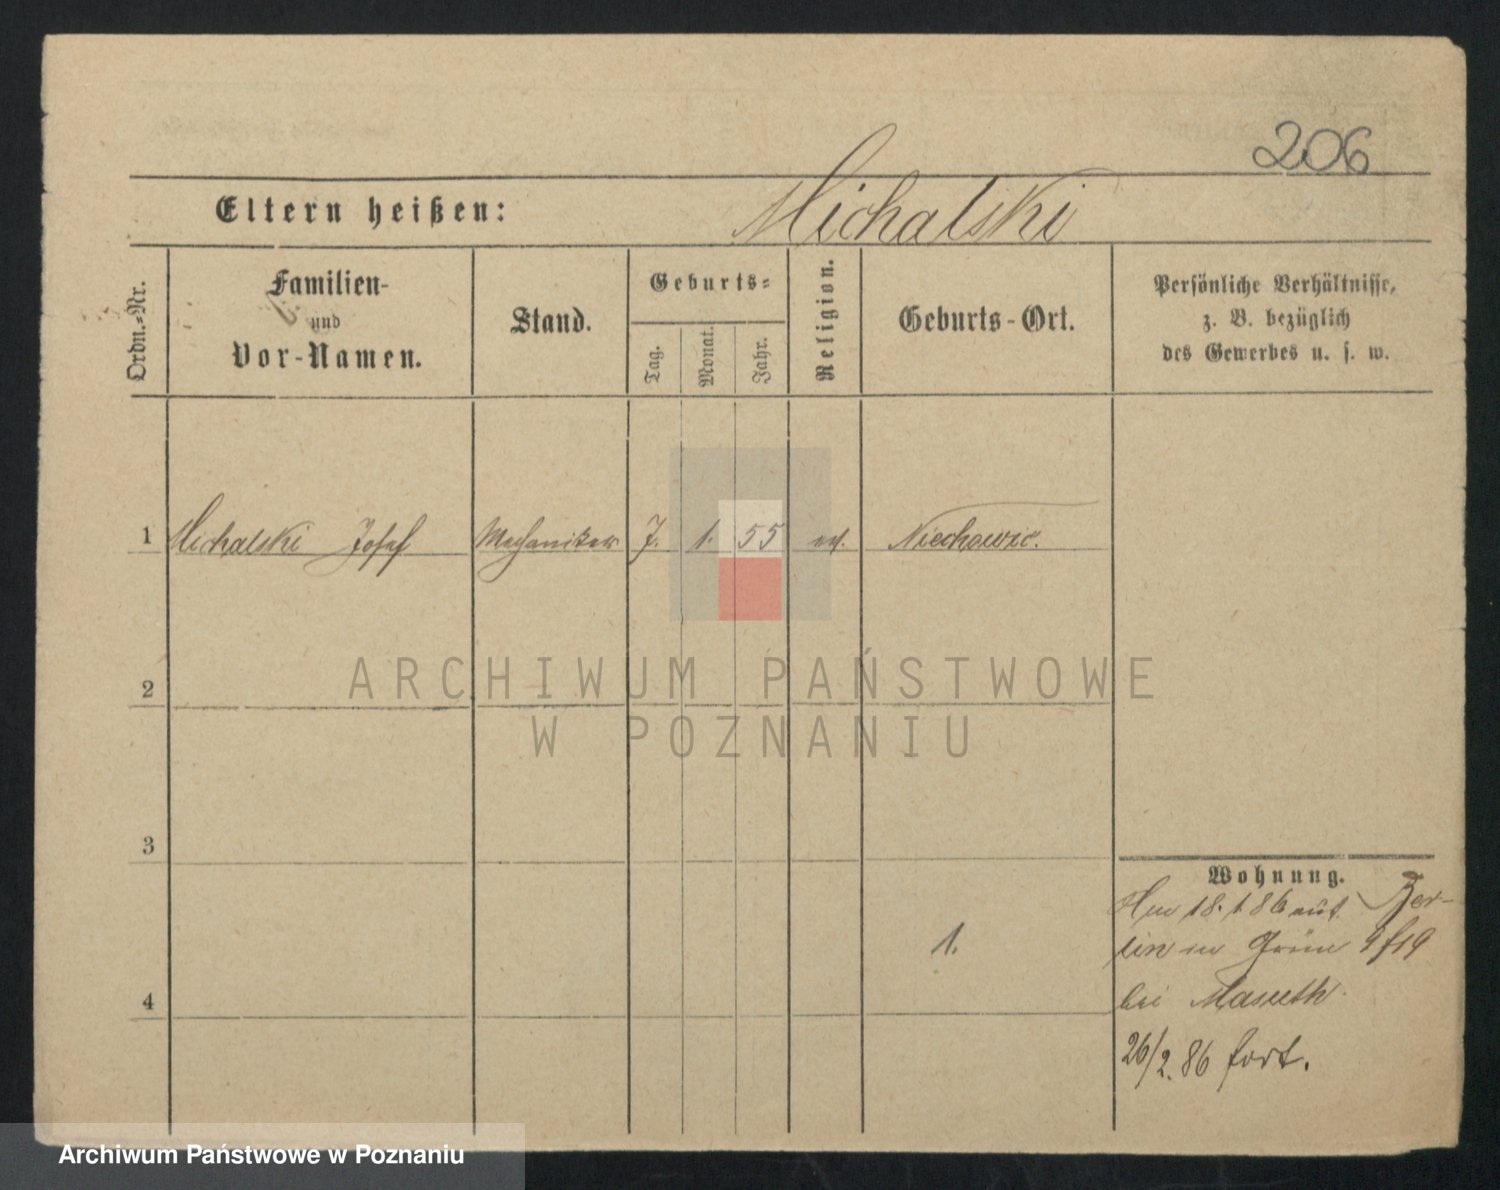 206
Eltern heißen: Michalski
Ordn.-Nr.
Familien-
und
Vor-Namen.
Stand.
Geburts-
Tag.
Monat.
Jahr.
Religion.
Geburts-Ort.
Persönliche Verhältnisse,
z. B. bezüglich
des Gewerbes u. s. w.
1 Michalski Josef Mechaniker 7. 1. 55 Niechowic.
ARCHIWUM PAŃSTWOWE
W POZNANIU
2
3
4
1.
Wohnung.
18.1.86 aus Ber-
lin in Grün
bei Masuth
26/2.86 fort.
Archiwum Państwowe w Poznaniu